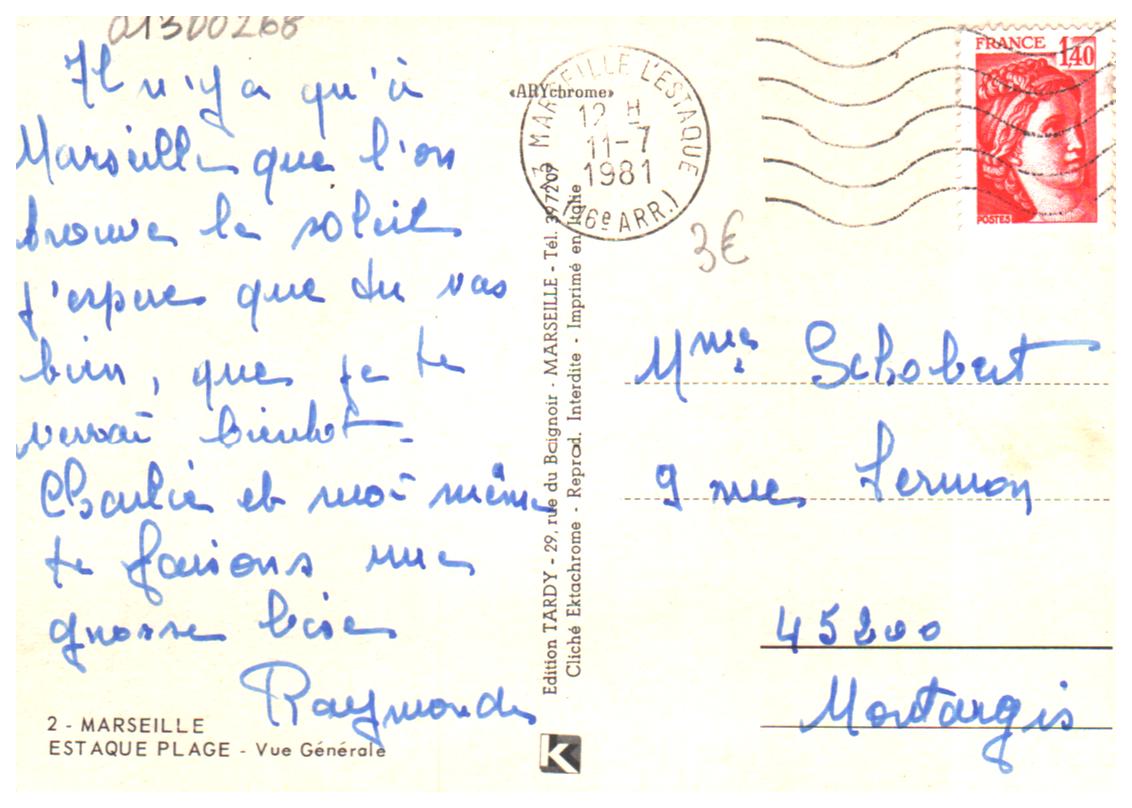 01300268
Il n'y a qu'à
Marseille que l'on
trouve le soleil
j'espère que tu vas
bien, que je te
verrai bientot.
Charlie et moi même
te faisons une
grosse bise
Raymonde
2 - MARSEILLE
ESTAQUE PLAGE - Vue Générale
«ARYchrome»
Edition TARDY - 29, rue du Baignoir - MARSEILLE - Tél. 39 72 09
Cliché Ektachrome - Reprod. Interdite - Imprimé en Italie
K
13 MARSEILLE L'ESTAQUE
12 H
11-7
1981
(16e ARR.)
FRANCE 1,40
POSTES
3€
Mme Schobert
9 rue Lermon
45200
Montargis